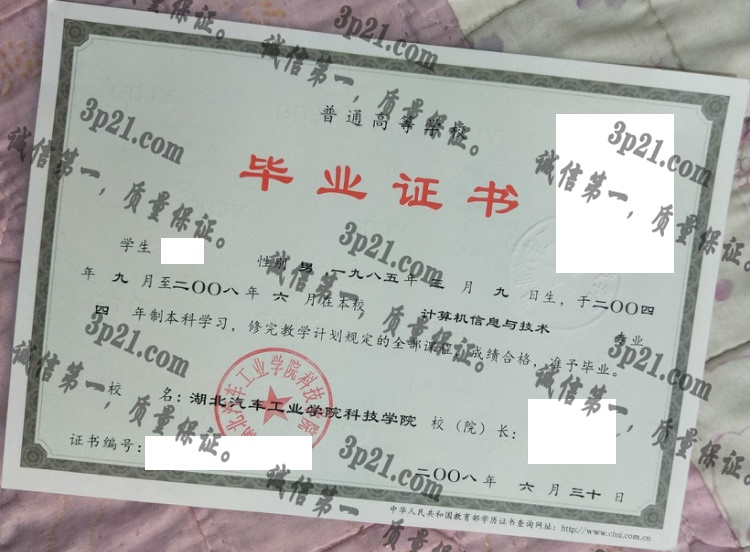 普通高等学校
毕业证书
学生 性别 男,一九八五年三月九日生,于二〇〇四
年九月至二〇〇八年六月在本校 计算机信息与技术 专业
四年制本科学习,修完教学计划规定的全部课程,成绩合格,准予毕业。
校 名:湖北汽车工业学院科技学院 校(院)长:
湖北汽车工业学院科技学院
证书编号:
二〇〇八年 六月三十日
中华人民共和国教育部学历证书查询网址:http://www.chsi.com.cn
3p21.com
诚信第一,质量保证。
3p21.com
诚信第一,质量保证。
3p21.com
诚信第一,质量保证。
3p21.com
诚信第一,质量保证。
3p21.com
诚信第一,质量保证。
3p21.com
诚信第一,质量保证。
3p21.com
诚信第一,质量保证。
3p21.com
诚信第一,质量保证。